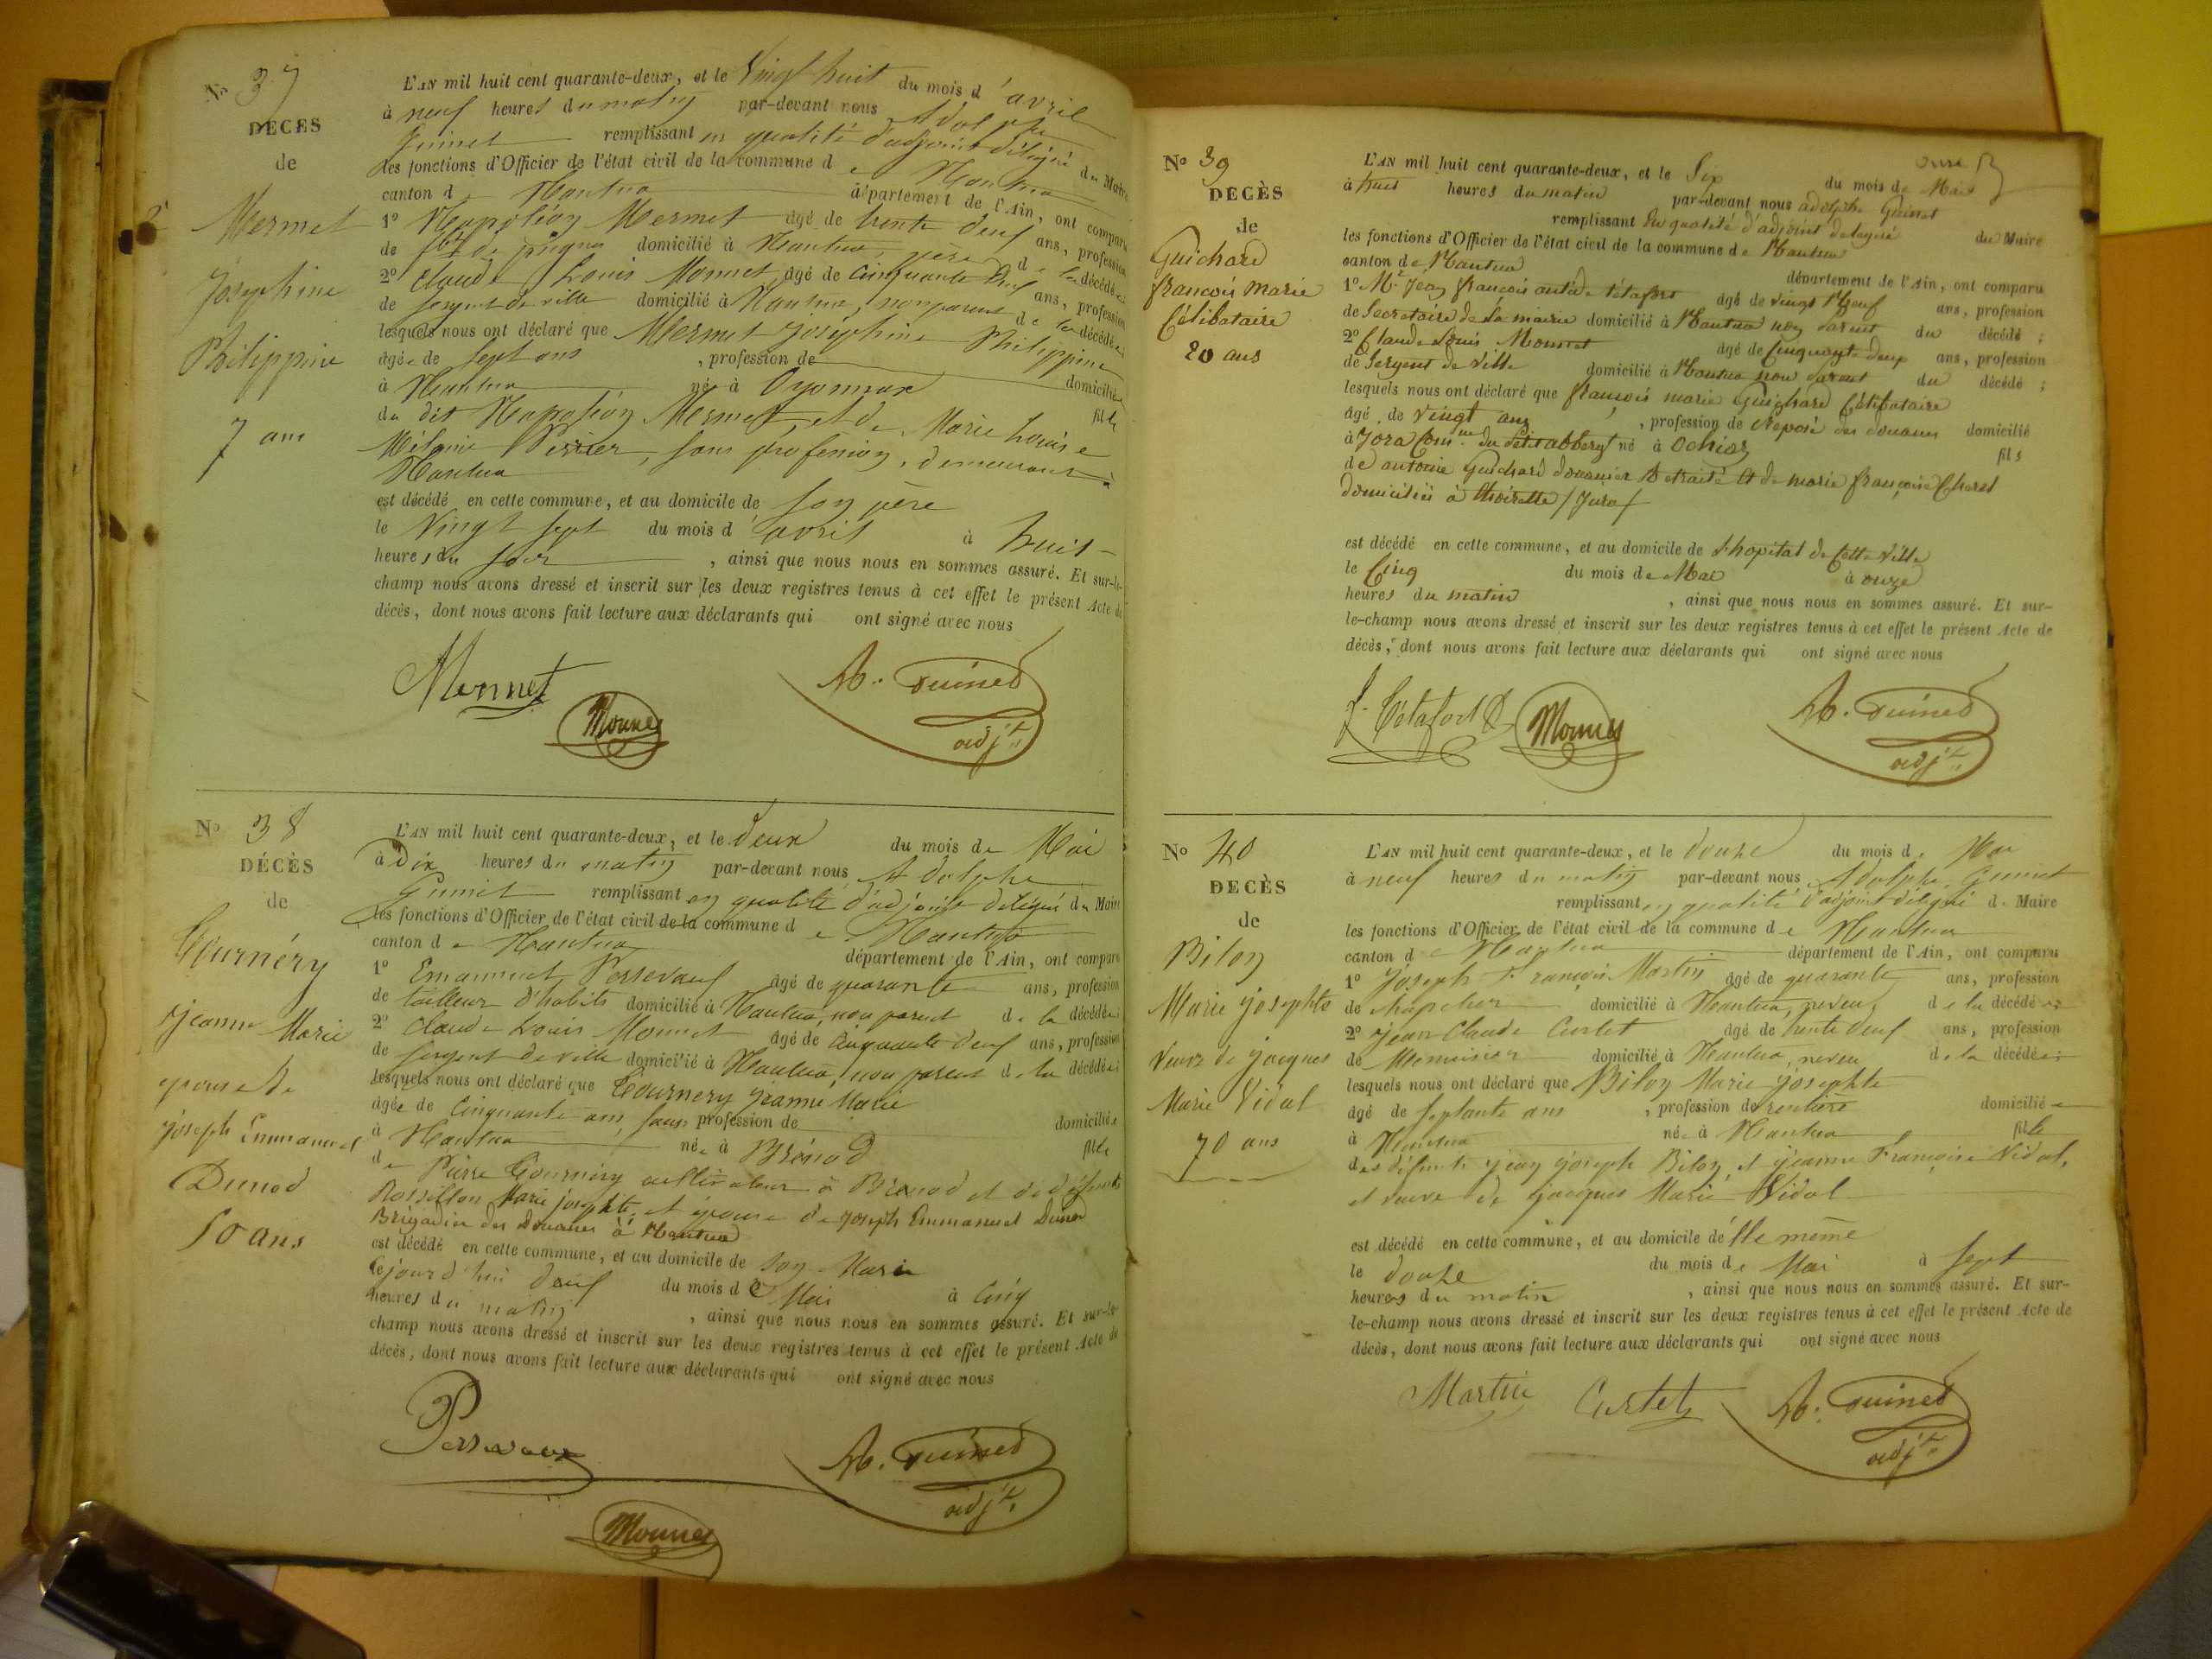 N° 37
DÉCES
de
Mermet
Joséphine
Philippine
7 ans
L'AN mil huit cent quarante-deux, et le Vingt huit du mois d'avril
à neuf heures du matin par-devant nous Adolphe
Guinet remplissant en qualité d'adjoint délégué du Maire
les fonctions d'Officier de l'état civil de la commune de Nantua
canton de Nantua département de l'Ain, ont comparu
1° Napoléon Mermet âgé de trente deux ans, profession
de de peignes domicilié à Nantua, père de la décédée
2° Claude Louis Monnet âgé de Cinquante deux ans, profession
de Sergent de ville domicilié à Nantua, non parent de la décédée
lesquels nous ont déclaré que Mermet Joséphine Philippine
âgée de Sept ans , profession de domiciliée
à Nantua née à Oyonnax fille
du dit Napoléon Mermet et de Marie Louise
Mélanie Perrier, sans profession, demeurant à
Nantua
est décédé en cette commune, et au domicile de son père
le Vingt sept du mois d'avril à huit
heures du soir , ainsi que nous nous en sommes assuré. Et sur-le-
champ nous avons dressé et inscrit sur les deux registres tenus à cet effet le présent Acte de
décès, dont nous avons fait lecture aux déclarants qui ont signé avec nous
Mermet
Monnet
Ad. Guinet
adjt
N° 38
DÉCÈS
de
Tournéry
jeanne Marie
épouse de
joseph Emmanuel
Dunod
50 ans
L'AN mil huit cent quarante-deux, et le deux du mois de Mai
à Dix heures du matin par-devant nous Adolphe
Guinet remplissant en qualité d'adjoint délégué du Maire
les fonctions d'Officier de l'état civil de la commune de Nantua
canton de Nantua département de l'Ain, ont comparu
1° Emanuel Persevaux âgé de quarante ans, profession
de tailleur d'habits domicilié à Nantua, non parent de la décédée
2° Claude Louis Monnet âgé de Cinquante deux ans, profession
de Sergent de ville domicilié à Nantua, non parent de la décédée
lesquels nous ont déclaré que Tournery jeanne Marie
âgée de Cinquante ans, sans profession de domiciliée
à Nantua née à Brénod fille
de Pierre Tournéry cultivateur à Brénod et de défunte
Rossillon Marie josephte, et épouse de joseph Emmanuel Dunod
Brigadier des Douanes à Nantua
est décédé en cette commune, et au domicile de son Mari
le jourd'hui deux du mois de Mai à Cinq
heures du matin , ainsi que nous nous en sommes assuré. Et sur-le-
champ nous avons dressé et inscrit sur les deux registres tenus à cet effet le présent Acte de
décès, dont nous avons fait lecture aux déclarants qui ont signé avec nous
Persevaux
Ad. Guinet
adjt
Monnet
N° 39
DECÈS
de
Guichard
françois marie
Célibataire
20 ans
L'AN mil huit cent quarante-deux, et le Six du mois de Mai
à huit heures du matin par-devant nous adolphe Guinet
remplissant en qualité d'adjoint délégué du Maire
les fonctions d'Officier de l'état civil de la commune de Nantua
canton de Nantua département de l'Ain, ont comparu
1° Mr Jean françois Tétafort âgé de vingt Neuf ans, profession
de Secrétaire de la mairie domicilié à Nantua non parent du décédé ;
2° Claude Louis Monnet âgé de Cinquante deux ans, profession
de Sergent de Ville domicilié à Nantua non parent du décédé ;
lesquels nous ont déclaré que françois marie Guichard Célibataire
âgé de Vingt ans , profession de Préposé des douanes domicilié
à né à Ochiaz fils
de antoine Guichard douanier Retraité et de marie françoise
domiciliés à Thoirette (Jura)
est décédé en cette commune, et au domicile de l'hopital de Cette Ville
le Cinq du mois de Mai à onze
heures du matin , ainsi que nous nous en sommes assuré. Et sur-
le-champ nous avons dressé et inscrit sur les deux registres tenus à cet effet le présent Acte de
décès, dont nous avons fait lecture aux déclarants qui ont signé avec nous
J. Tétafort
Monnet
Ad. Guinet
adjt
N° 40
DECÈS
de
Biloz
Marie josephte
Veuve de jacques
Marie Vidal
70 ans
L'AN mil huit cent quarante-deux, et le douze du mois de Mai
à neuf heures du matin par-devant nous Adolphe Guinet
remplissant en qualité d'adjoint délégué du Maire
les fonctions d'Officier de l'état civil de la commune de Nantua
canton de Nantua département de l'Ain, ont comparu
1° Joseph François Martin âgé de quarante ans, profession
de chapelier domicilié à Nantua, neveu de la décédée
2° jean Claude Curtet âgé de trente deux ans, profession
de Menuisier domicilié à Nantua, neveu de la décédée
lesquels nous ont déclaré que Biloz Marie josephte
âgé de Septante ans , profession de rentière domiciliée
à Nantua née à Nantua fille
des défunts jean joseph Biloz et jeanne Françoise Vidal,
et veuve de jacques Marie Vidal
est décédé en cette commune, et au domicile d'elle même
le douze du mois de Mai à Sept
heures du matin , ainsi que nous nous en sommes assuré. Et sur-
le-champ nous avons dressé et inscrit sur les deux registres tenus à cet effet le présent Acte de
décès, dont nous avons fait lecture aux déclarants qui ont signé avec nous
Martin
Curtet
Ad. Guinet
adjt